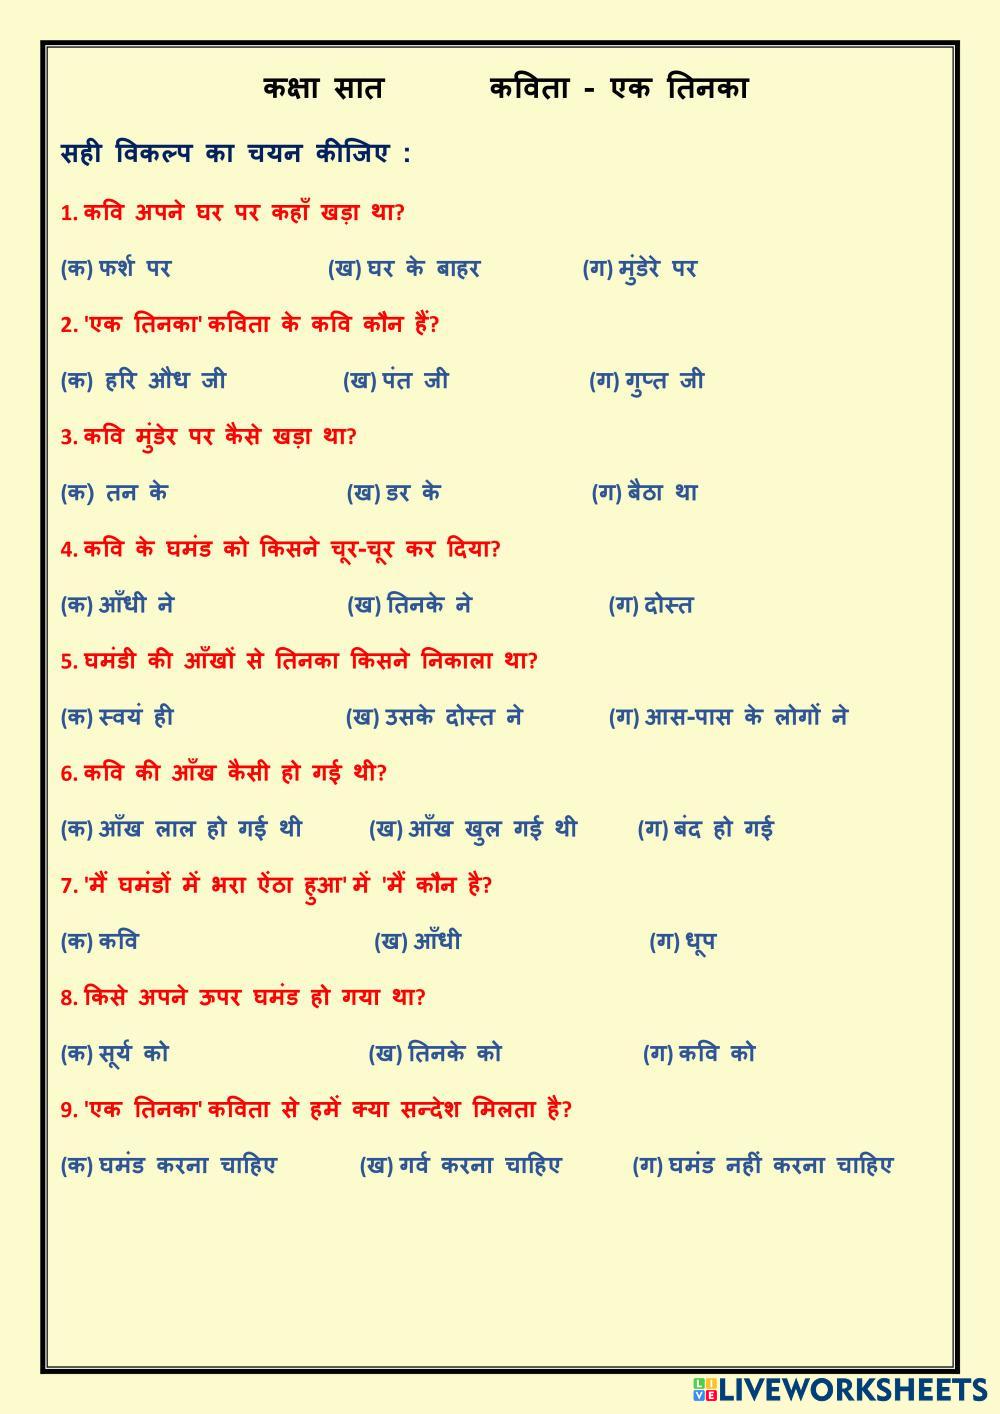 कक्षा सात कविता - एक तिनका
सही विकल्प का चयन कीजिए :
1. कवि अपने घर पर कहाँ खड़ा था?
(क) फर्श पर (ख) घर के बाहर (ग) मुंडेरे पर
2. 'एक तिनका' कविता के कवि कौन हैं?
(क) हरि औध जी (ख) पंत जी (ग) गुप्त जी
3. कवि मुंडेर पर कैसे खड़ा था?
(क) तन के (ख) डर के (ग) बैठा था
4. कवि के घमंड को किसने चूर-चूर कर दिया?
(क) आँधी ने (ख) तिनके ने (ग) दोस्त
5. घमंडी की आँखों से तिनका किसने निकाला था?
(क) स्वयं ही (ख) उसके दोस्त ने (ग) आस-पास के लोगों ने
6. कवि की आँख कैसी हो गई थी?
(क) आँख लाल हो गई थी (ख) आँख खुल गई थी (ग) बंद हो गई
7. 'मैं घमंडों में भरा ऐंठा हुआ' में 'मैं कौन है?
(क) कवि (ख) आँधी (ग) धूप
8. किसे अपने ऊपर घमंड हो गया था?
(क) सूर्य को (ख) तिनके को (ग) कवि को
9. 'एक तिनका' कविता से हमें क्या सन्देश मिलता है?
(क) घमंड करना चाहिए (ख) गर्व करना चाहिए (ग) घमंड नहीं करना चाहिए
LIVE LIVEWORKSHEETS